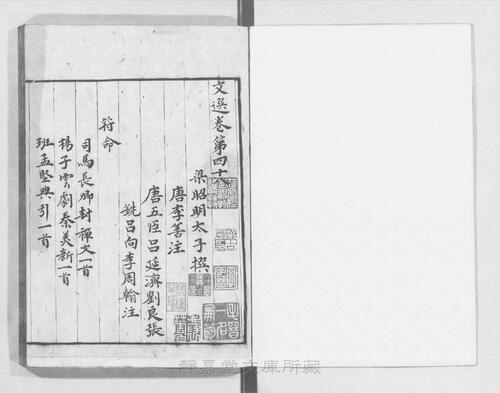 文選卷第四十八
梁昭明太子撰
唐李善注
唐五臣呂延濟劉良張
銑呂向李周翰注
符命
司馬長卿封禪文一首
楊子雲劇秦美新一首
班孟堅典引一首
靜嘉堂文庫所藏